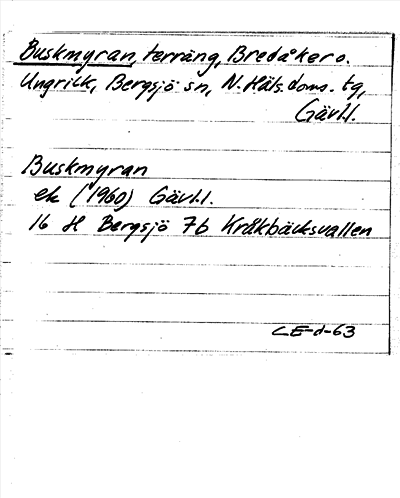 Buskmyran, terräng, Bredåker o.
Ungrick, Bergsjö sn, N. Häls. doms. tg,
Gävl.l.
Buskmyran
ek (1960) Gävl.l.
16 H Bergsjö 7b Kråkbäcksvallen
LE-d-63